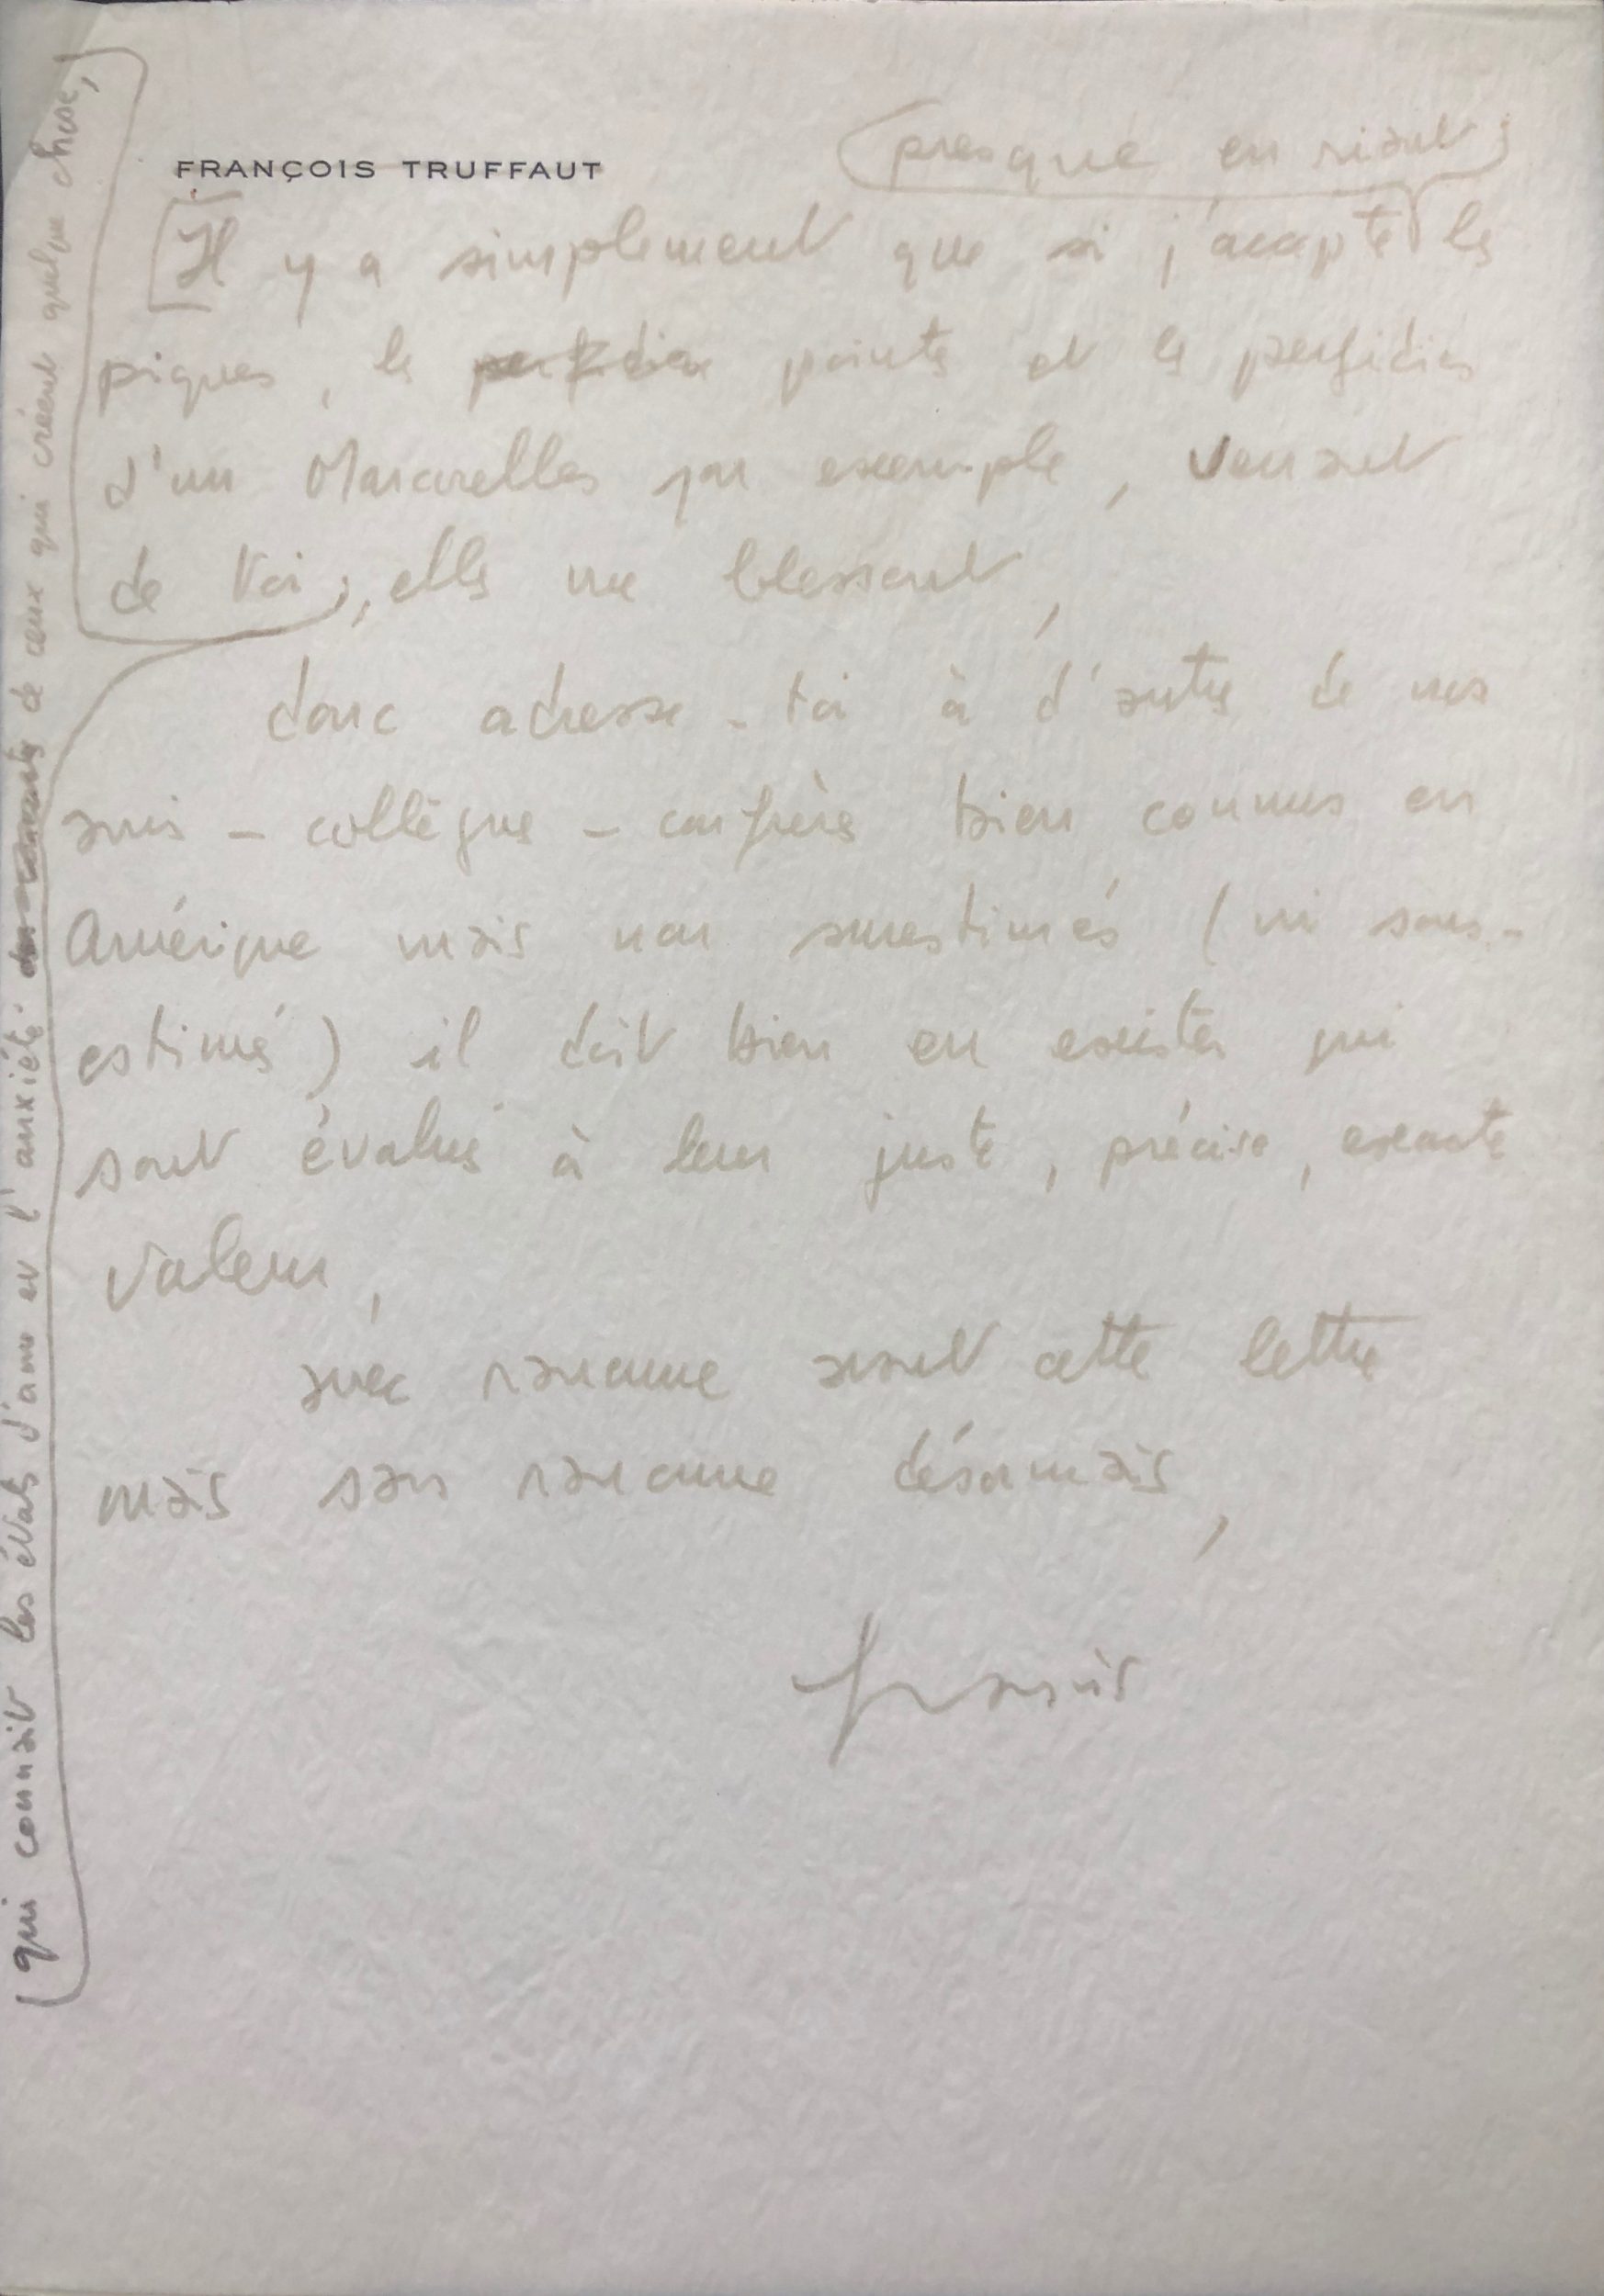 FRANÇOIS TRUFFAUT
(presque en riant)
[Il y a simplement que si j'accepte les
piques, les perfidies pointes et les perfidies
d'un Marcorelles par exemple, venant
de toi, elles me blessent,
donc adresse-toi à d'autres de nos
amis - collègues - confrères bien connus en
Amérique mais non surestimés (ni sous-
estimés) il doit bien en exister qui
sont évalués à leur juste, précise, exacte
valeur,
avec rancune avant cette lettre
mais sans rancune désormais,
françois
qui connait les états d'ame et l'anxiété de ceux qui créent quelque chose,